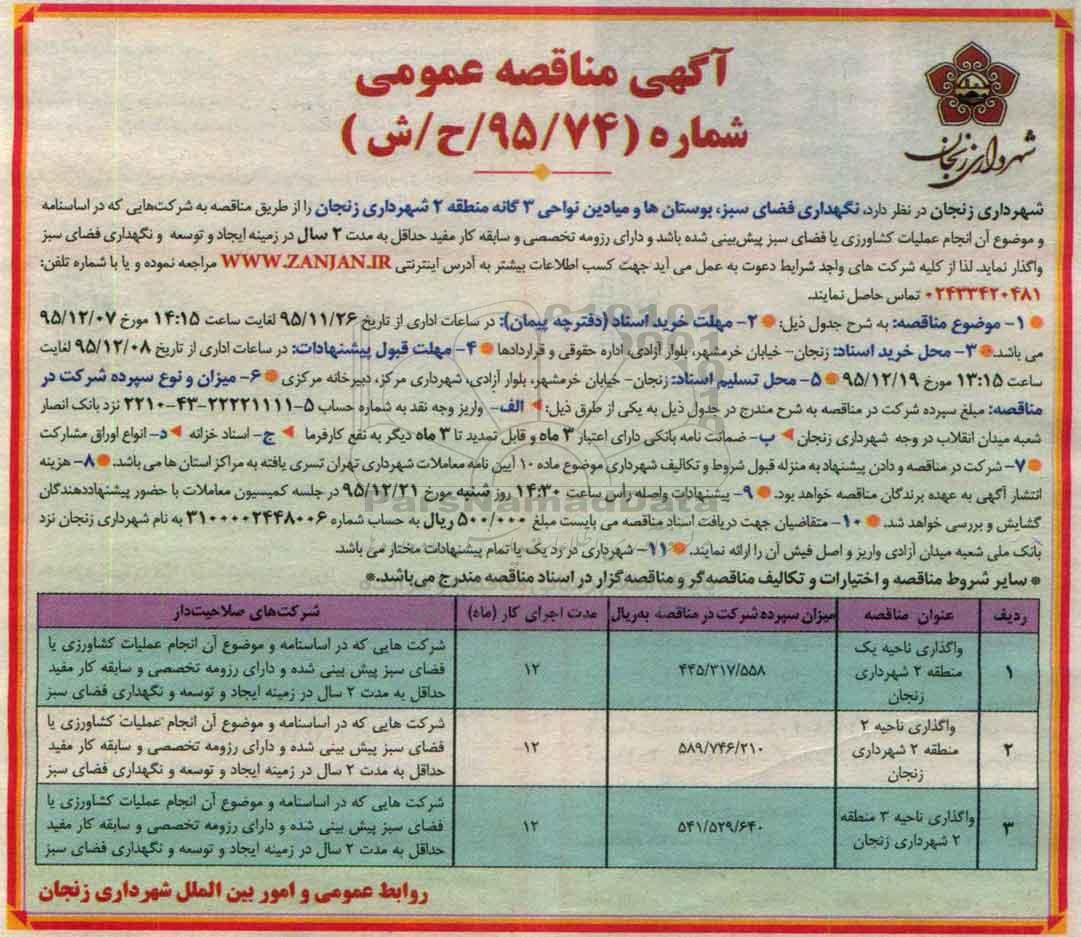 آگهی مناقصه عمومی
شماره (۹۵/۷۴/ح/ش)
شهرداری زنجان
شهرداری زنجان در نظر دارد، نگهداری فضای سبز، بوستان ها و میادین نواحی ۳ گانه منطقه ۲ شهرداری زنجان را از طریق مناقصه به شرکت‌هایی که در اساسنامه
و موضوع آن انجام عملیات کشاورزی یا فضای سبز پیش‌بینی شده باشد و دارای رزومه تخصصی و سابقه کار مفید حداقل به مدت ۲ سال در زمینه ایجاد و توسعه و نگهداری فضای سبز
واگذار نماید. لذا از کلیه شرکت های واجد شرایط دعوت به عمل می آید جهت کسب اطلاعات بیشتر به آدرس اینترنتی WWW.ZANJAN.IR مراجعه نموده و یا با شماره تلفن:
۰۲۴۳۳۴۲۰۴۸۱ تماس حاصل نمایند.
۱- موضوع مناقصه: به شرح جدول ذیل: ۲- مهلت خرید اسناد (دفترچه پیمان): در ساعات اداری از تاریخ ۹۵/۱۱/۲۶ لغایت ساعت ۱۴:۱۵ مورخ ۹۵/۱۲/۰۷
می باشد. ۳- محل خرید اسناد: زنجان- خیابان خرمشهر، بلوار آزادی، اداره حقوقی و قراردادها ۴- مهلت قبول پیشنهادات: در ساعات اداری از تاریخ ۹۵/۱۲/۰۸ لغایت
ساعت ۱۳:۱۵ مورخ ۹۵/۱۲/۱۹ ۵- محل تسلیم اسناد: زنجان- خیابان خرمشهر، بلوار آزادی، شهرداری مرکز، دبیرخانه مرکزی ۶- میزان و نوع سپرده شرکت در
مناقصه: مبلغ سپرده شرکت در مناقصه به شرح مندرج در جدول ذیل به یکی از طرق ذیل: الف- واریز وجه نقد به شماره حساب ۵-۲۲۲۲۱۱۱۱-۴۳-۲۲۱۰ نزد بانک انصار
شعبه میدان انقلاب در وجه شهرداری زنجان ب- ضمانت نامه بانکی دارای اعتبار ۳ ماه و قابل تمدید تا ۳ ماه دیگر به نفع کارفرما ج- اسناد خزانه د- انواع اوراق مشارکت
۷- شرکت در مناقصه و دادن پیشنهاد به منزله قبول شروط و تکالیف شهرداری موضوع ماده ۱۰ آیین نامه معاملات شهرداری تهران تسری یافته به مراکز استان ها می باشد. ۸- هزینه
انتشار آگهی به عهده برندگان مناقصه خواهد بود. ۹- پیشنهادات واصله رأس ساعت ۱۴:۳۰ روز شنبه مورخ ۹۵/۱۲/۲۱ در جلسه کمیسیون معاملات با حضور پیشنهاددهندگان
گشایش و بررسی خواهد شد. ۱۰- متقاضیان جهت دریافت اسناد مناقصه می بایست مبلغ ۵۰۰/۰۰۰ ریال به حساب شماره ۳۱۰۰۰۰۲۴۴۸۰۰۶ به نام شهرداری زنجان نزد
بانک ملی شعبه میدان آزادی واریز و اصل فیش آن را ارائه نمایند. ۱۱- شهرداری در رد یک یا تمام پیشنهادات مختار می باشد.
* سایر شروط مناقصه و اختیارات و تکالیف مناقصه‌گر و مناقصه‌گزار در اسناد مناقصه مندرج می‌باشد.*
ردیف عنوان مناقصه میزان سپرده شرکت در مناقصه به‌ریال مدت اجرای کار (ماه) شرکت‌های صلاحیت‌دار
واگذاری ناحیه یک شرکت هایی که در اساسنامه و موضوع آن انجام عملیات کشاورزی یا
۱ منطقه ۲ شهرداری ۴۴۵/۳۱۷/۵۵۸ ۱۲ فضای سبز پیش بینی شده و دارای رزومه تخصصی و سابقه کار مفید
زنجان حداقل به مدت ۲ سال در زمینه ایجاد و توسعه و نگهداری فضای سبز
واگذاری ناحیه ۲ شرکت هایی که در اساسنامه و موضوع آن انجام عملیات کشاورزی یا
۲ منطقه ۲ شهرداری ۵۸۹/۷۴۶/۲۱۰ ۱۲ فضای سبز پیش بینی شده و دارای رزومه تخصصی و سابقه کار مفید
زنجان حداقل به مدت ۲ سال در زمینه ایجاد و توسعه و نگهداری فضای سبز
واگذاری ناحیه ۳ منطقه شرکت هایی که در اساسنامه و موضوع آن انجام عملیات کشاورزی یا
۳ ۲ شهرداری زنجان ۵۴۱/۵۲۹/۶۴۰ ۱۲ فضای سبز پیش بینی شده و دارای رزومه تخصصی و سابقه کار مفید
حداقل به مدت ۲ سال در زمینه ایجاد و توسعه و نگهداری فضای سبز
روابط عمومی و امور بین الملل شهرداری زنجان
ParsNamadData